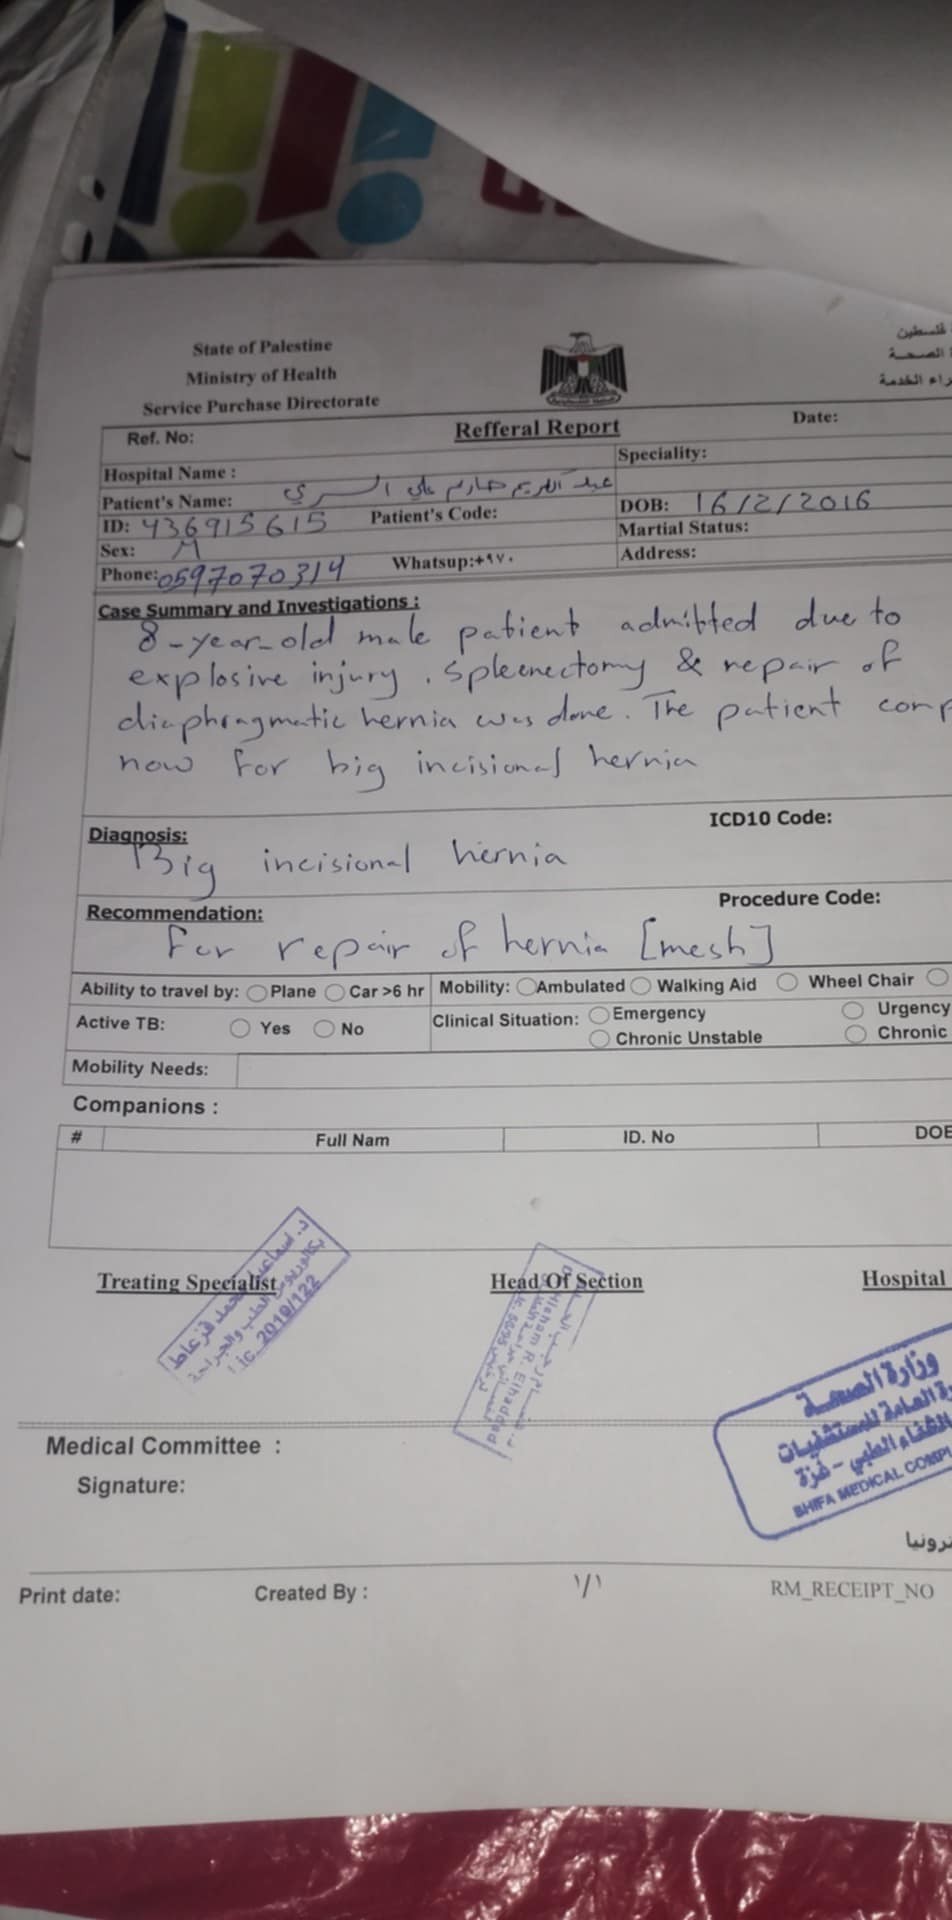 State of Palestine
Ministry of Health
Service Purchase Directorate
فلسطين
الصحة
الخدمة
Ref. No:
Refferal Report
Date:
Hospital Name :
Speciality:
Patient's Name: عبد الكريم حازم علي السري
DOB: 16/2/2016
ID: 436915615 Patient's Code:
Martial Status:
Sex: M
Address:
Phone: 0597070314 Whatsup:+٩٧٠
Case Summary and Investigations :
8-year-old male patient admitted due to
explosive injury. Spleenectomy & repair of
diaphragmatic hernia was done. The patient comp
now for big incisional hernia
Diagnosis:
ICD10 Code:
Big incisional hernia
Recommendation:
Procedure Code:
For repair of hernia [mesh]
Ability to travel by: Plane Car >6 hr Mobility: Ambulated Walking Aid Wheel Chair
Active TB: Yes No Clinical Situation: Emergency Urgency
Chronic Unstable Chronic
Mobility Needs:
Companions :
# Full Nam ID. No DOB
Treating Specialist
Head Of Section
Hospital
د. اسماعيل محمد
بكالوريوس الطب والجراحة
Hisham R. Elhaddad
وزارة الصحة
العامة للمستشفيات
الشفاء الطبي - غزة
SHIFA MEDICAL COMPL
Medical Committee :
Signature:
Print date:
Created By :
١/١
RM_RECEIPT_NO